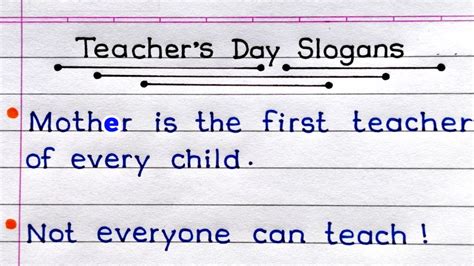 Teacher's Day Slogans
Mother is the first teacher
of every child.
Not everyone can teach !